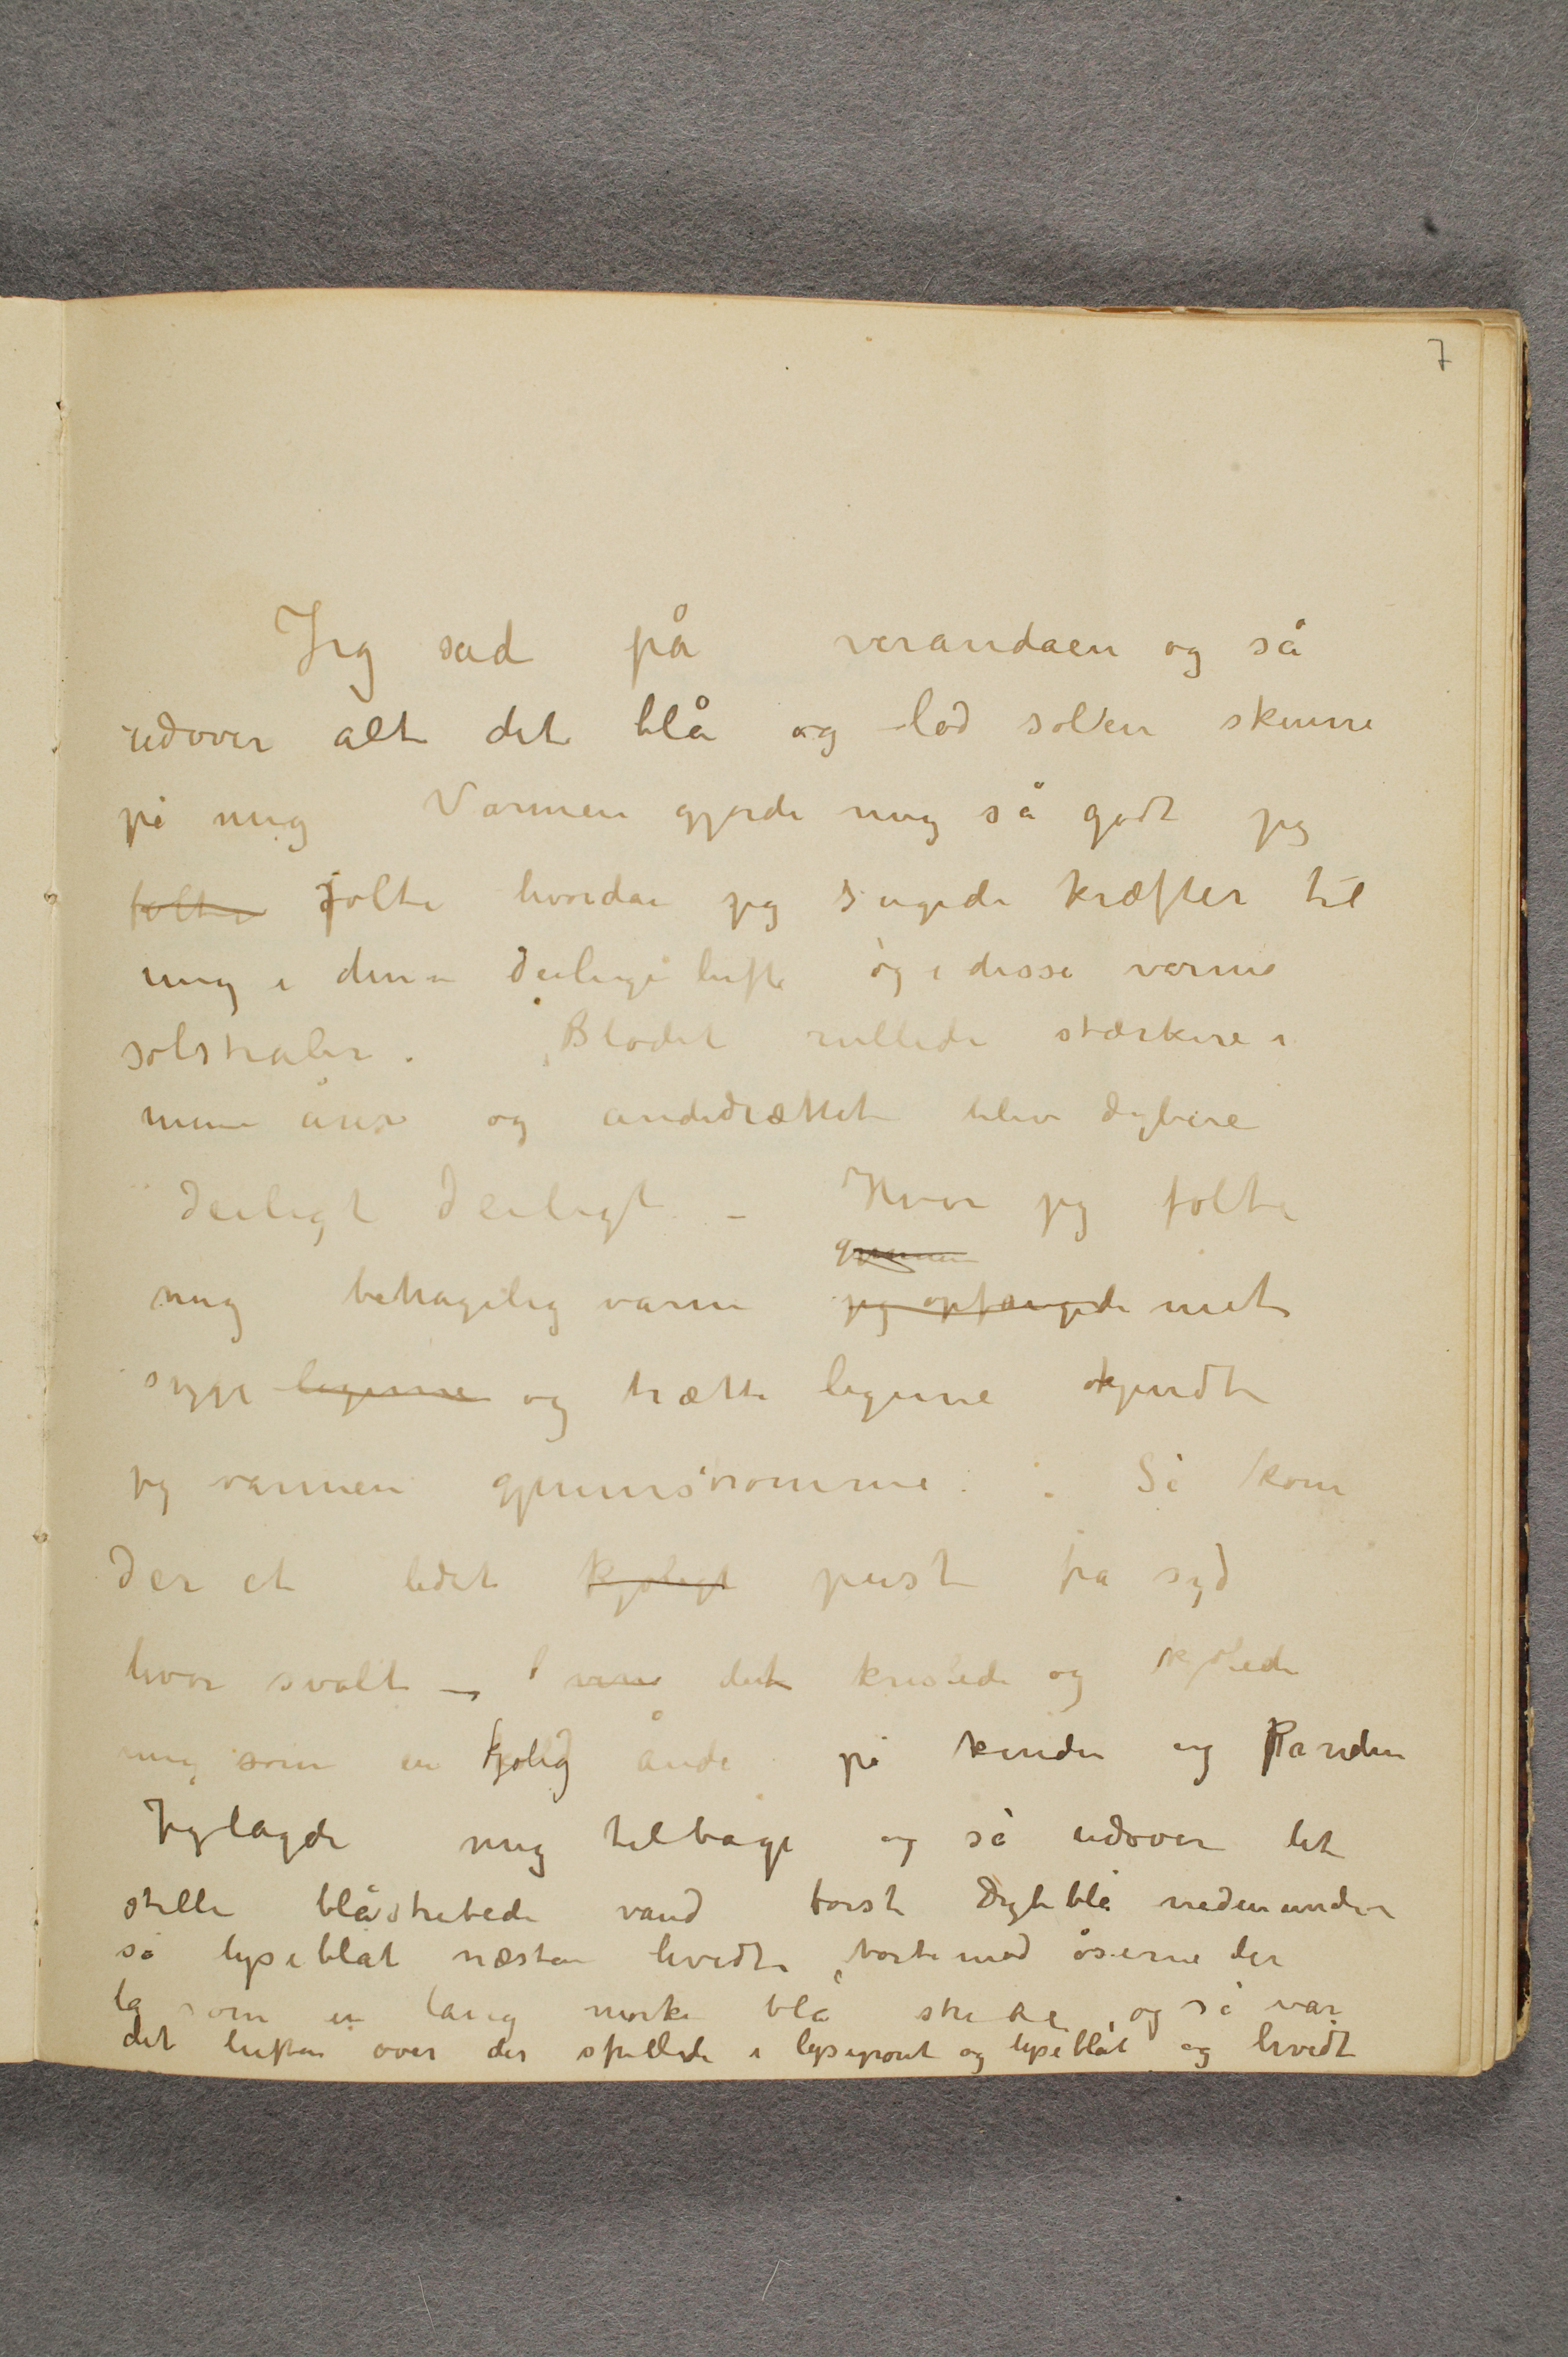 7
Jeg sad på verandaen og så
udover alt det blå og lod solen skinne
på mig Varmen gjorde mig så godt jeg
følte følte hvordan jeg sugede kræfter til
mig i denne deilige luft og i disse varme
solstraler. Blodet rullede stærkere i
mine årer og åndedrættet blev dybere
deiligt deiligt – Hvor jeg følte
gjennem
mig behagelig varm jeg opfangede mit
syge legeme og trætte legeme kjendte
jeg varmen gjennemstrømme. Så kom
der et lidet kjøligt pust fra syd
hvor svalt – det krislede og kjølede
mig som en kjølig ånde på kinden og Panden
Jeg lagde mig tilbage og så udover det
stille blåstribede vand først Dybblå nedenunder
så lyseblåt næsten hvidt bortimod åserne der
lå som en lang mørke blå stribe og så var
det luften over der spillede i lysegrønt og lyseblåt og hvidt